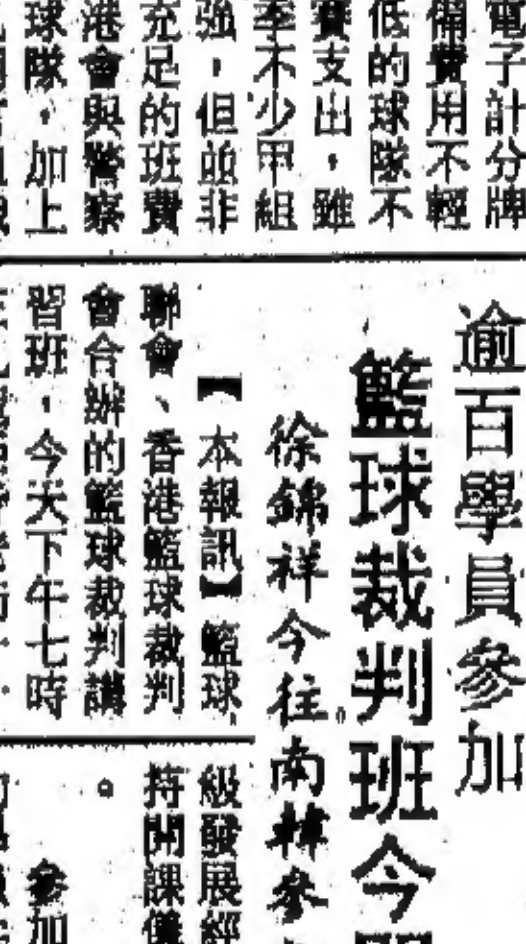 電子計分牌
備費用不輕
低的球隊不
賽支出，雖
季不少甲組
強，但並非
充足的班費
港會與警察
球隊，加上
逾百學員參加
籃球裁判班今
徐錦祥今往南韓參
【本報訊】籃球
聯會、香港籃球裁判
會合辦的籃球裁判講
習班，今天下午七時
級發展經
持開課儀
。
參加